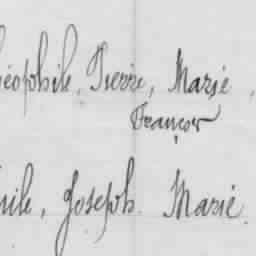 éophile, Pierre, Marie,
François
ile, Joseph Marie